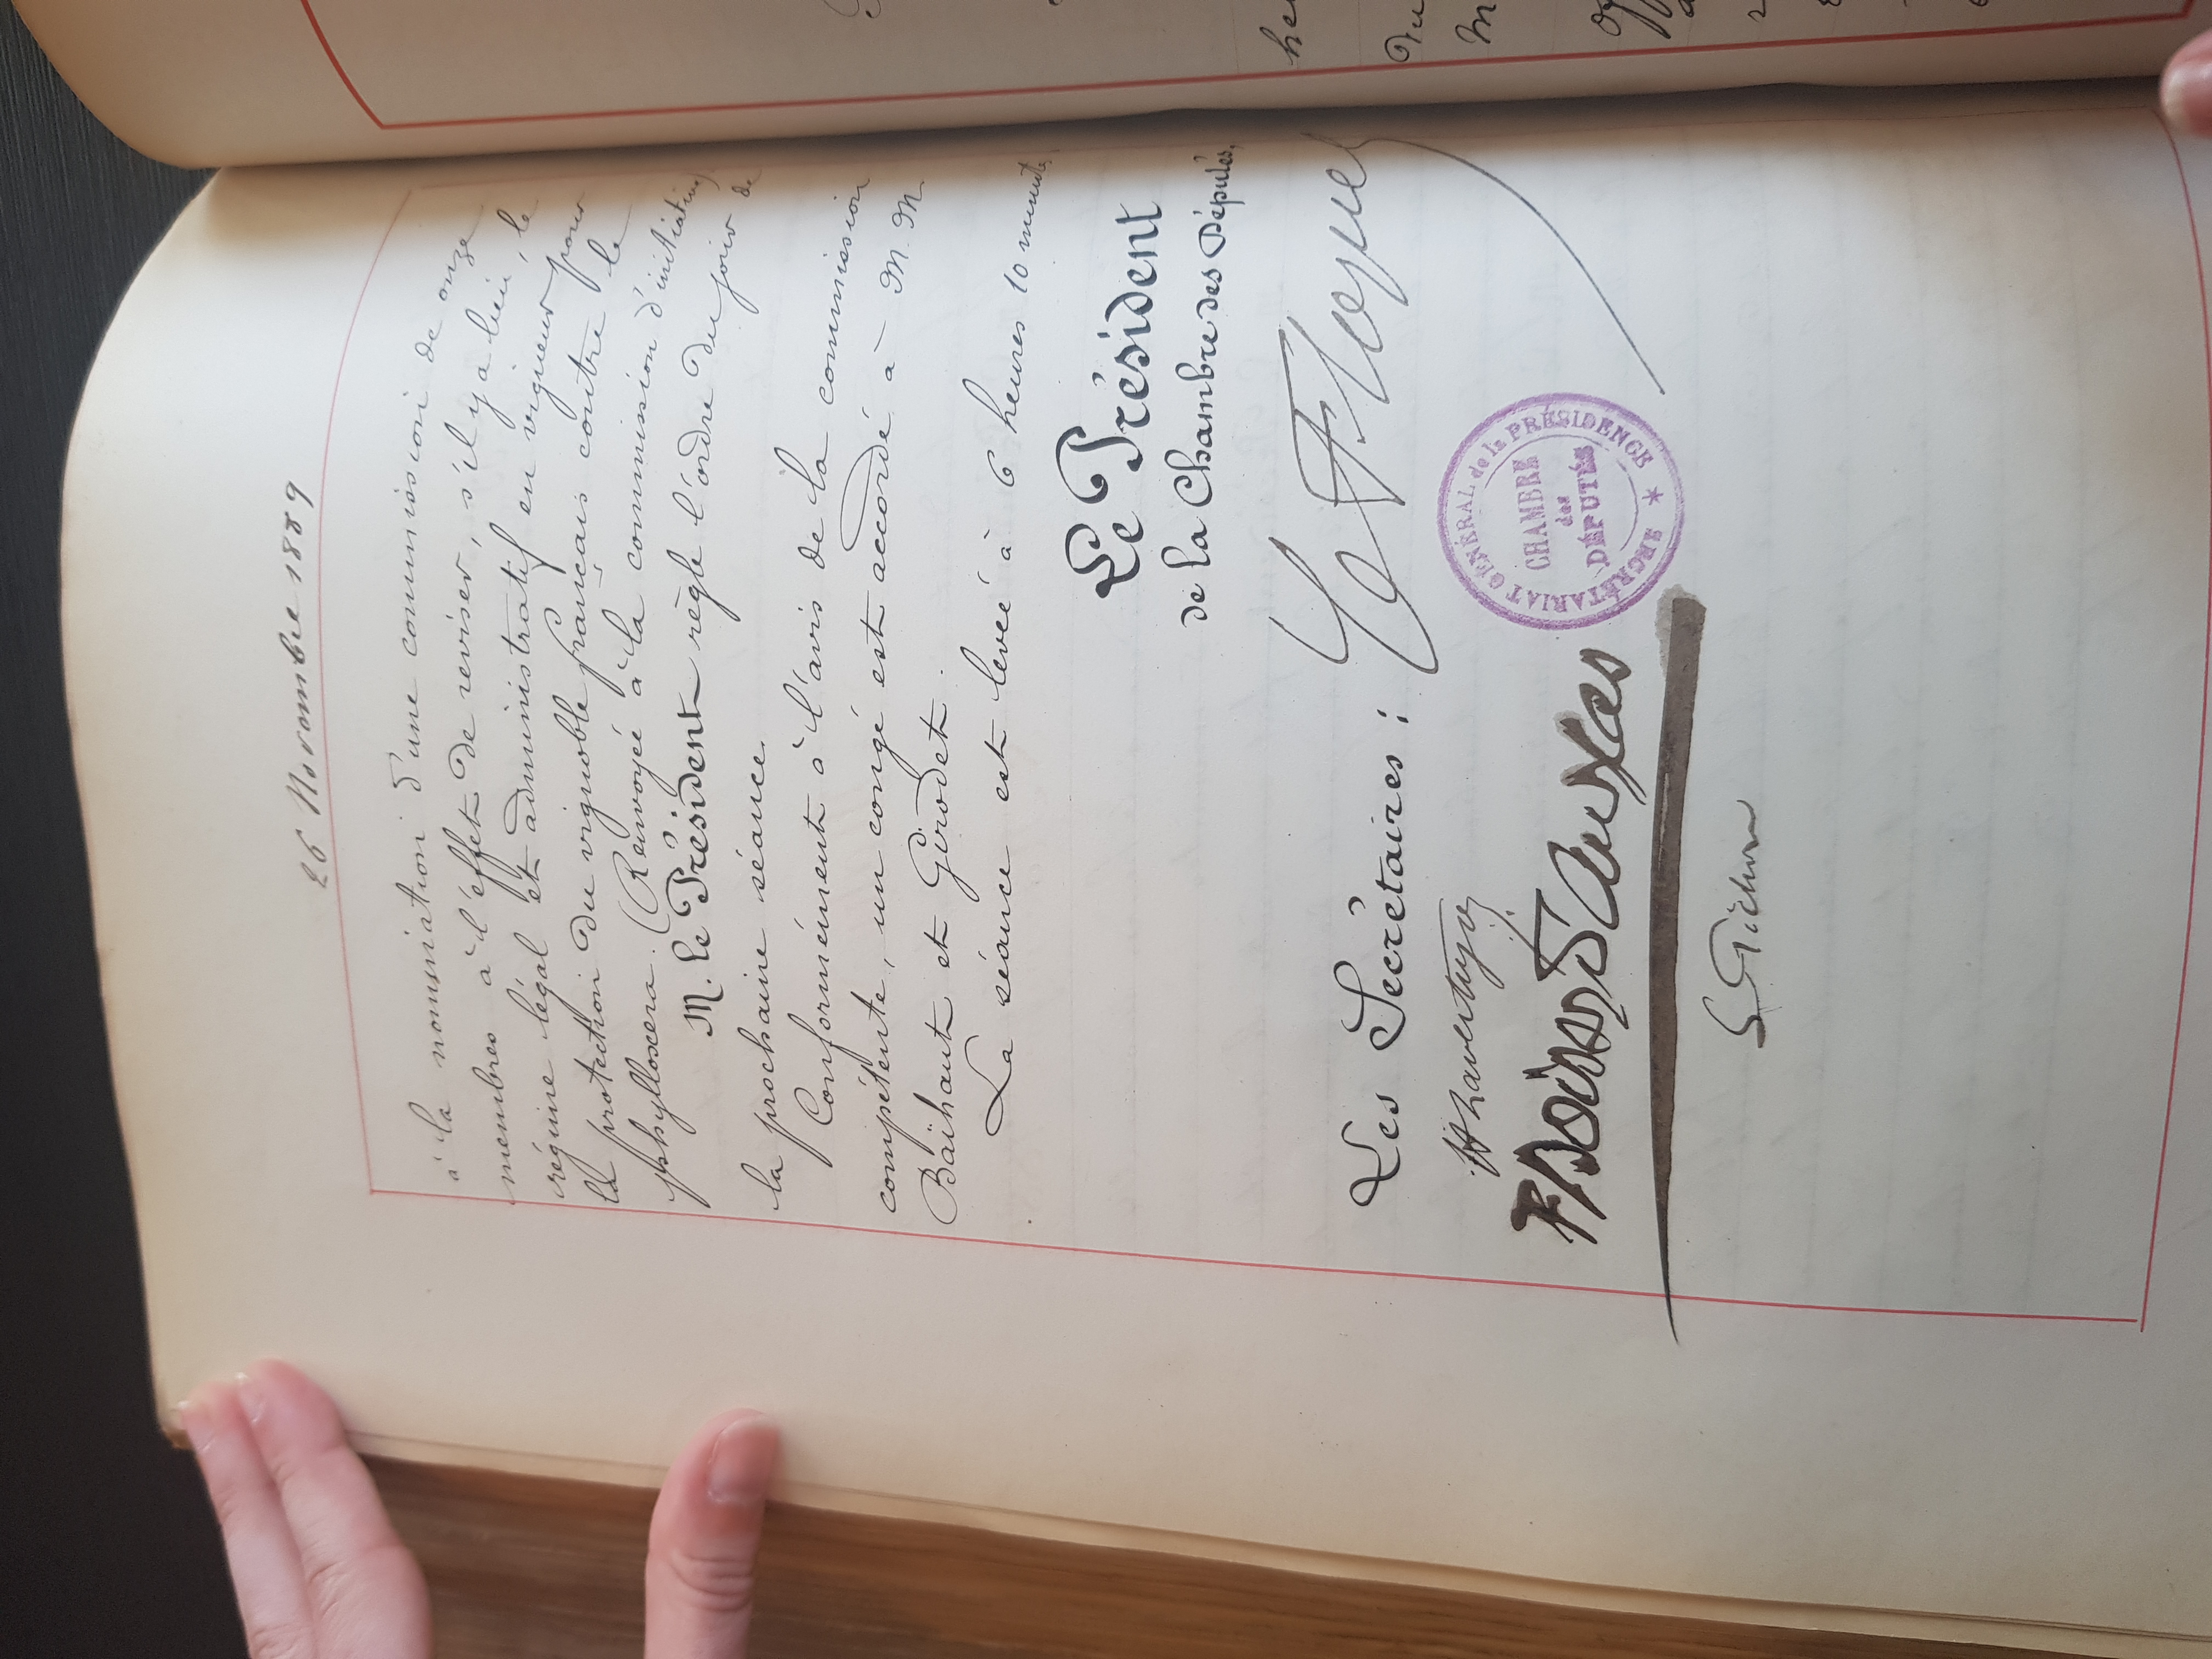 26 Novembre 1889
à la nomination d'une commission de onze
membres à l'effet de reviser, s'il y a lieu, le
régime légal et administratif en vigueur pour
la protection du vignoble français contre le
phylloxera. (Renvoyée à la commission d'initiative)
M. le Président règle l'ordre du jour de
la prochaine séance.
Conformément à l'avis de la commission
compétente, un congé est accordé à M. M
Baïhaut et Girodet.
La séance est levée à 6 heures 10 minutes
Le Président
de la Chambre des Députés.
Ch Floquet
Les Secrétaires :
SECRÉTARIAT GÉNÉRAL de la PRÉSIDENCE
CHAMBRE
des
DÉPUTÉS
S Pichon
he
du
M